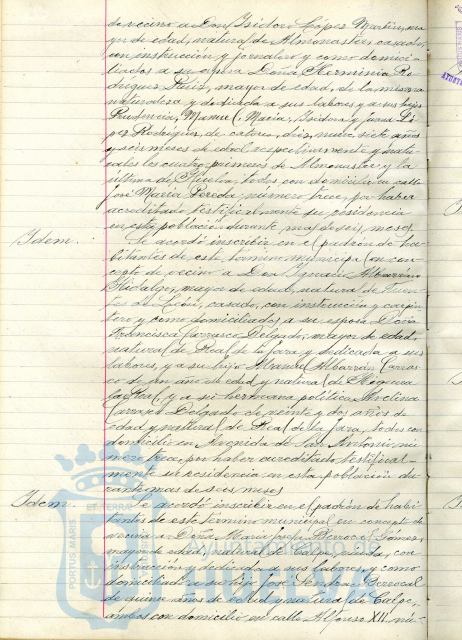 de vecino a Don Isidoro López Martín, ma-
yor de edad, natural de Almonaster, casado,
con instrucción y jornalero y como domici-
liados a su esposa Doña Herminia Ro-
dríguez, mayor de edad, de la misma
naturaleza y dedicada a sus labores y a sus hijos
Prudencia, Manuel, María, Isidora y Juana Ló-
pez Rodríguez, de catorce, diez, nueve, siete años
y seis meses de edad respectivamente y natu-
rales los cuatro primeros de Almonaster y la
última de Huelva, todos con domicilio en calle
José María Pereda, número trece, por haber
acreditado testificalmente su residencia
en esta población durante mas de seis meses.
Idem. Se acordó inscribir en el padrón de ha-
bitantes de este término municipal en con-
cepto de vecino a Don Ignacio Albarrán
Hidalgo, mayor de edad, natural de Fuen-
tes de León, casado, con instrucción y carpin-
tero y como domiciliados a su esposa Doña
Francisca Carrasco Delgado, mayor de edad,
natural de Real de la Jara y dedicada a sus
labores, y a su hijo Manuel Albarrán Carras-
co de un año de edad y natural de Higuera
la Real, y a su hermana política Avelina
Carrasco Delgado de veinte y dos años de
edad y natural de Real de la Jara, todos con
domicilio en Avenida de San Antonio, nú-
mero trece, por haber acreditado testifical-
mente su residencia en esta población du-
rante mas de seis meses
Idem. Se acordó inscribir en el padrón de habi-
tantes de este término municipal en concepto de
vecina a Doña María Josefa Berrocal Gómez,
mayor de edad, natural de Calpe, viuda, con
instrucción y dedicada a sus labores, y como
domiciliado a su hijo José Sendra Berrocal
de quince años de edad y natural de Calpe,
ambos con domicilio en calle Alfonso XII, nú-
PORTUS MARIS
ET TERRAE